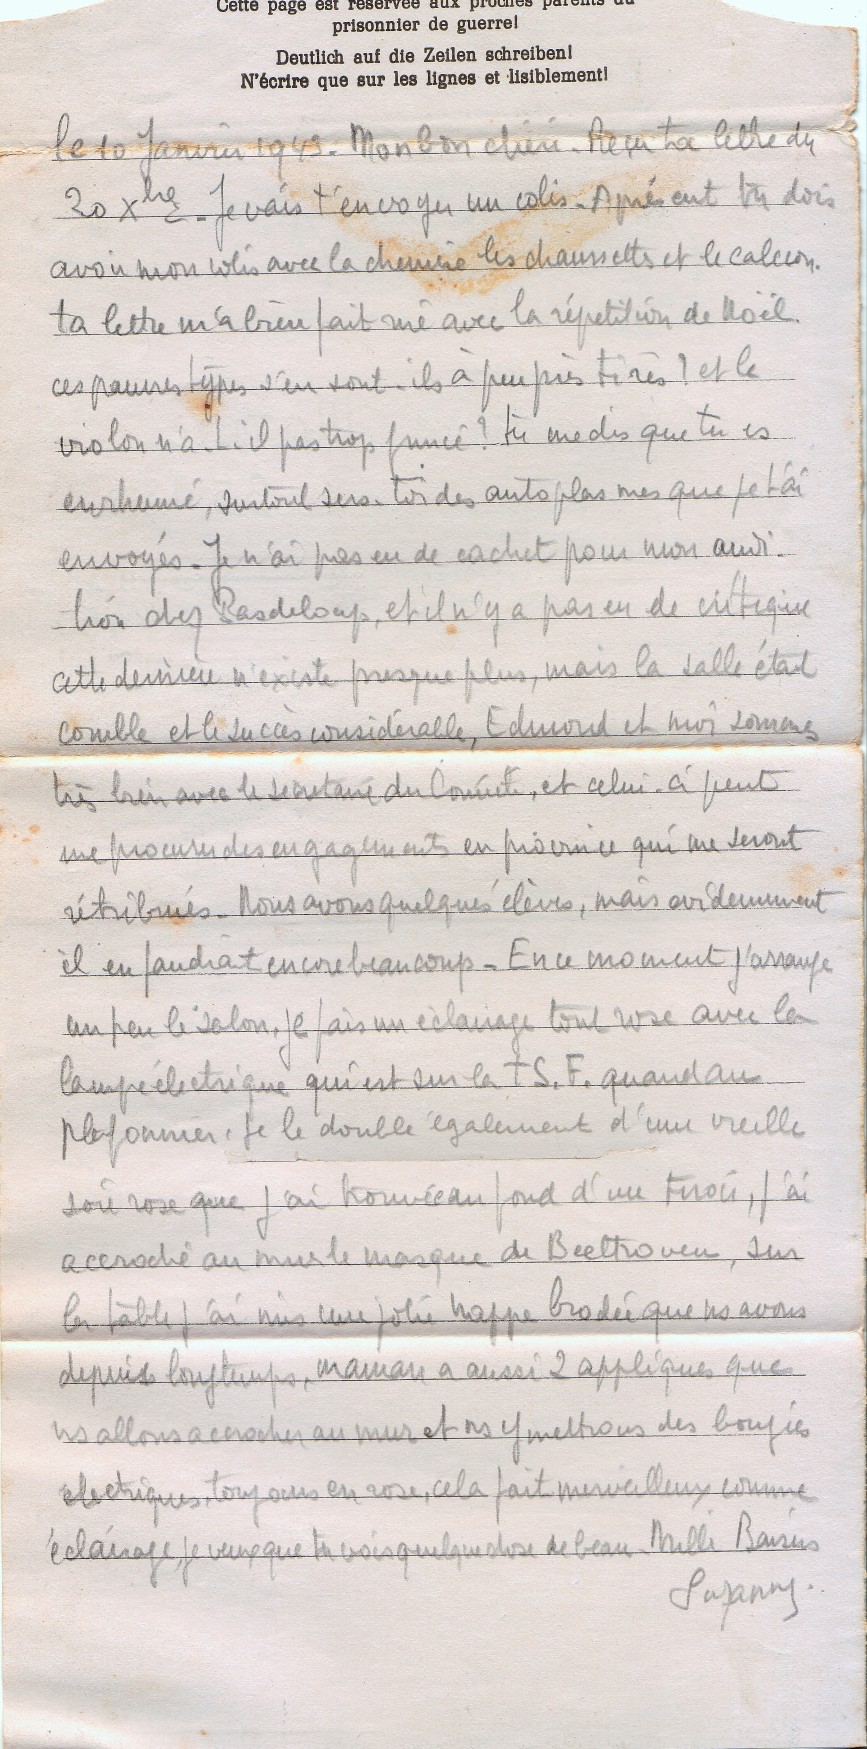 Cette page est réservée aux proches parents du
prisonnier de guerre!
Deutlich auf die Zeilen schreiben!
N'écrire que sur les lignes et lisiblement!
le 10 Janvier 1943. Mon bon chéri. Reçu ta lettre du
20 Xbre. Je vais t'envoyer un colis. Aprésent tu dois
avoir mon colis avec la chemise les chaussettes et le caleçon.
ta lettre m'a bien fait rire avec la répétition de Noël.
ces pauvres types s'en sont-ils à peu près tirés? et le
violon n'a-t-il pas trop grincé? tu me dis que tu es
enrhumé, surtout sers-toi des autoplasmes que je t'ai
envoyés. Je n'ai pas eu de cachet pour mon audi-
tion chez Pasdeloup, et il n'y a pas eu de critique
cette dernière n'existe presque plus, mais la salle était
comble et le succès considérable, Edmond et moi sommes
très bien avec le secrétaire du Comité, et celui-ci peut
me procurer des engagements en province qui me seront
rétribués. Nous avons quelques élèves, mais évidemment
il en faudrait encore beaucoup. En ce moment j'arrange
un peu le salon, je fais un éclairage tout rose avec la
lampe électrique qui est sur la T.S.F. quand au
plafonnier, je le double également d'une vieille
soie rose que j'ai trouvée au fond d'un tiroir, j'ai
accroché au mur le masque de Beethoven, sur
la table j'ai mis une jolie nappe brodée que ns avons
depuis longtemps, maman a aussi 2 appliques que
ns allons accrocher au mur et ns y mettrons des bougies
électriques, toujours en rose, cela fait merveilleux comme
éclairage, je veux que tu vois quelque chose de beau. Mille Baisers
Suzanne.